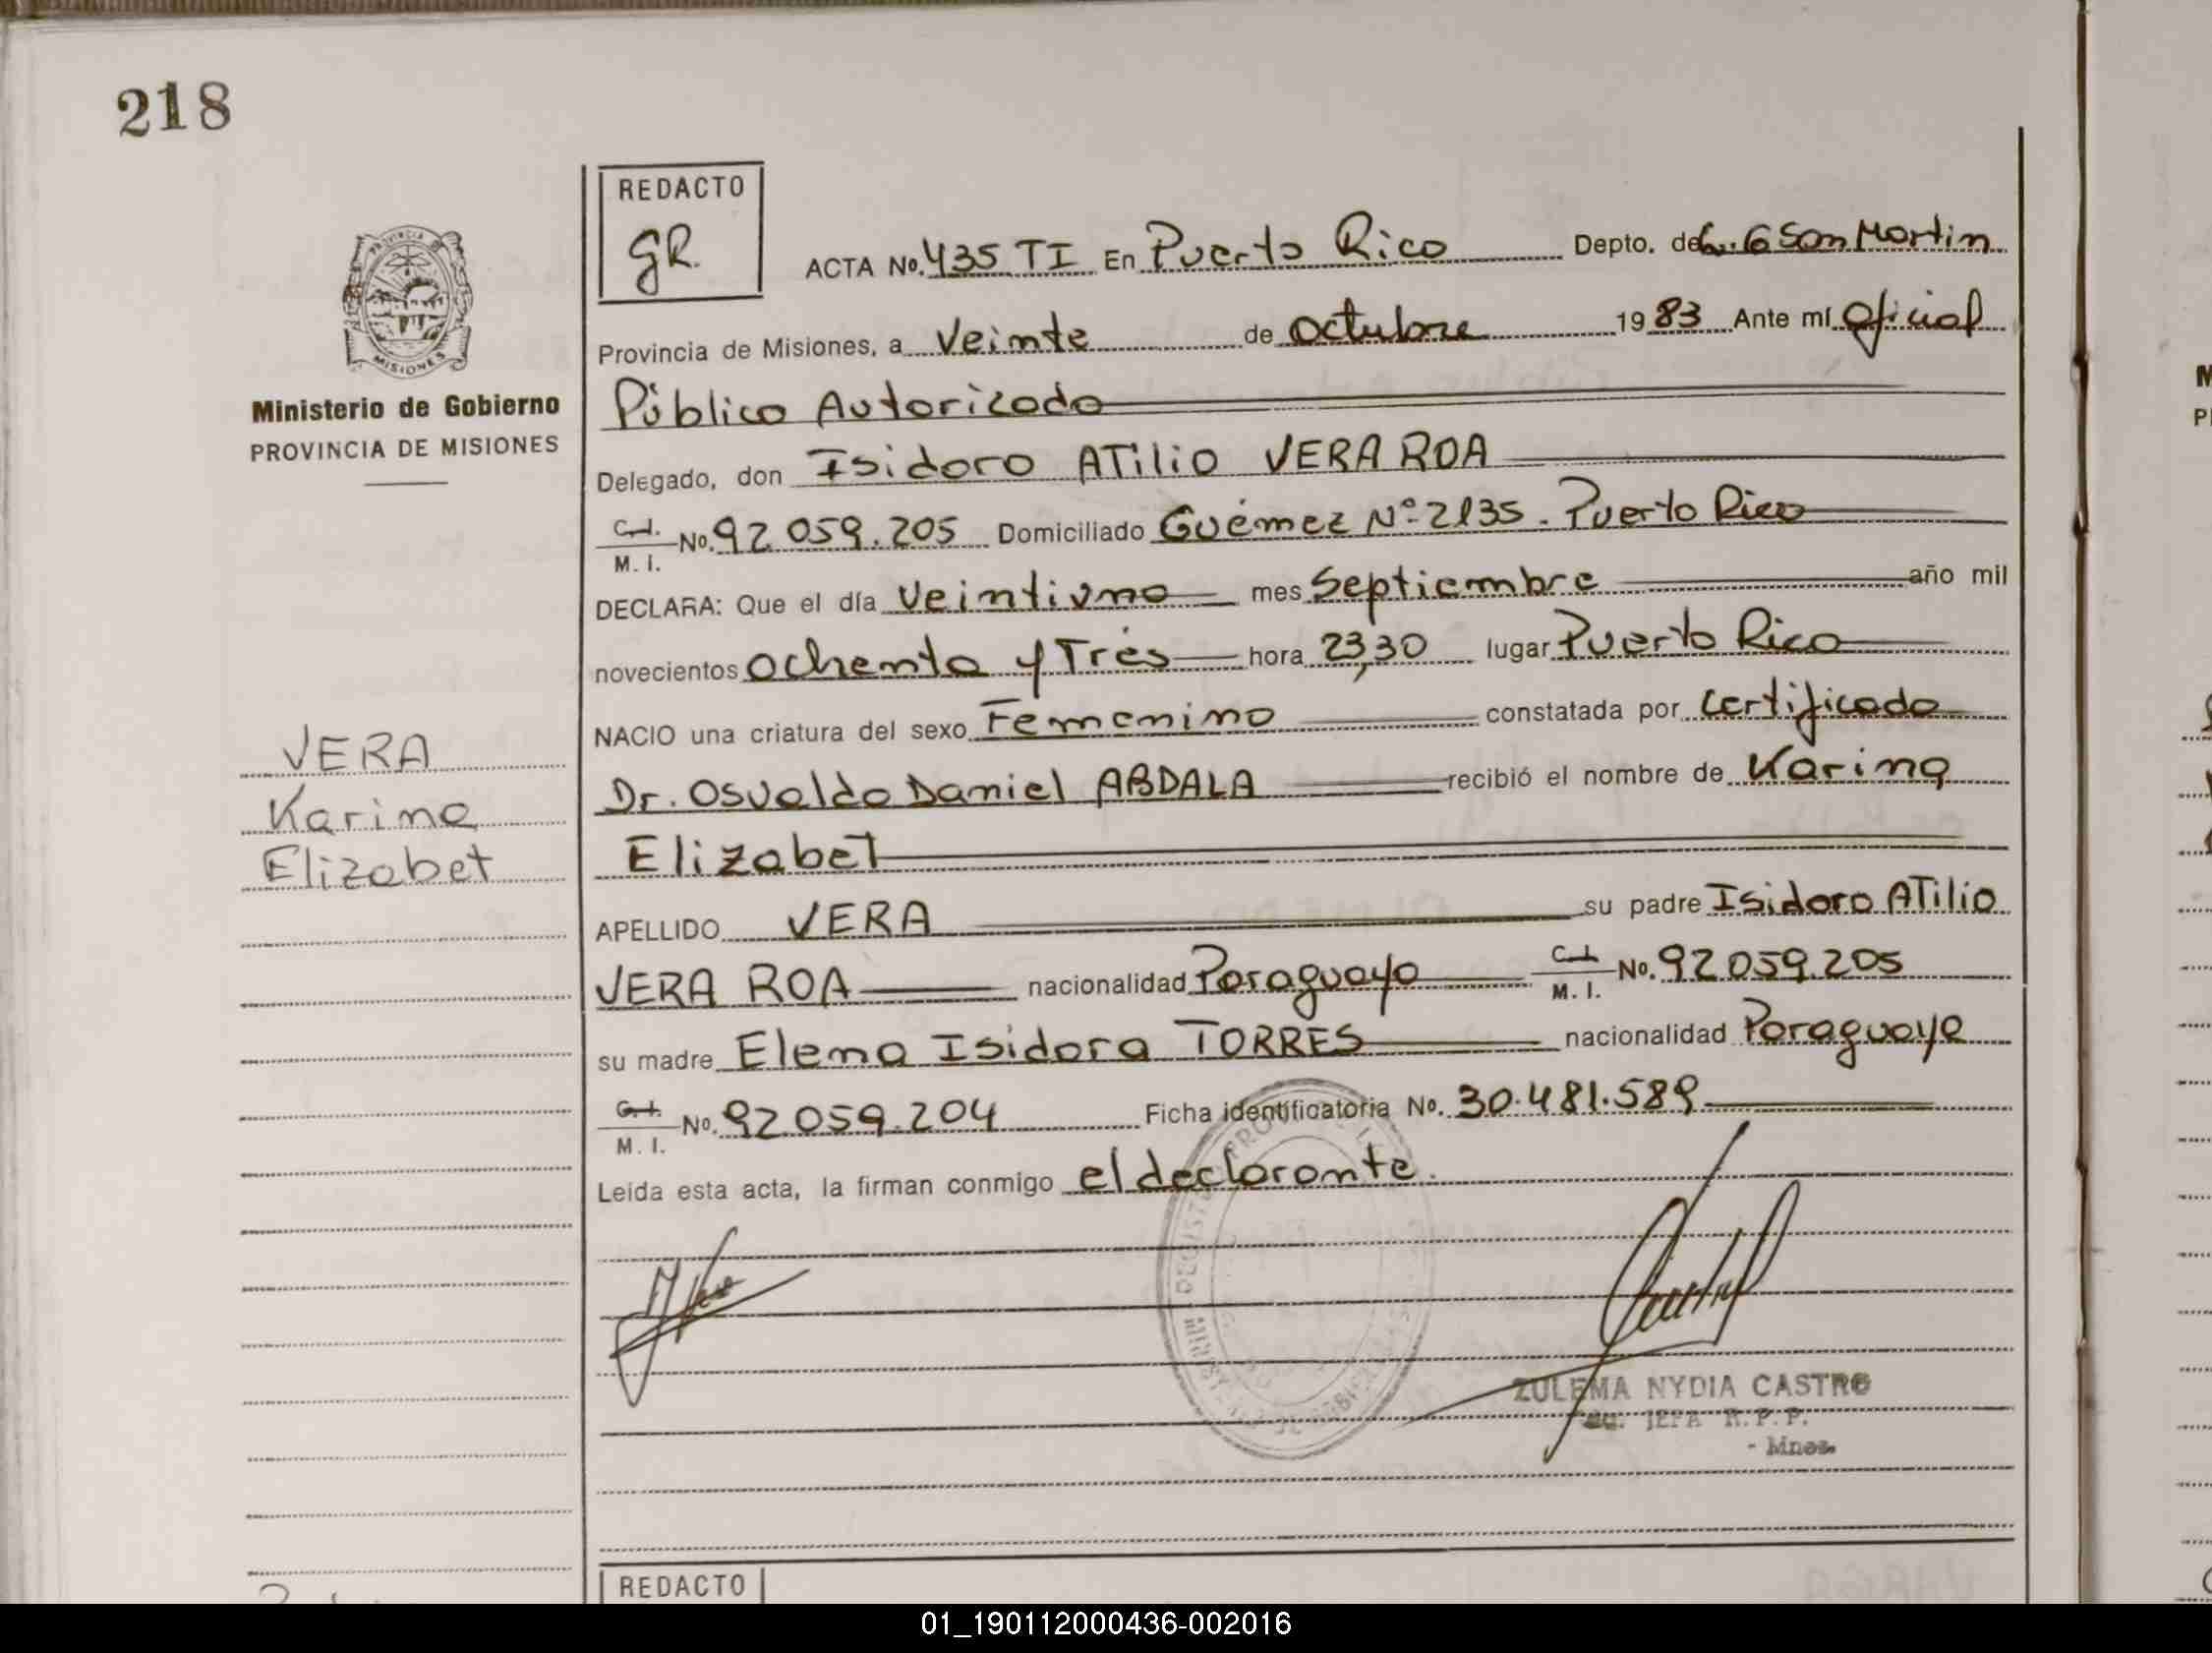 218
REDACTO
GR.
ACTA No. 435 TI En Puerto Rico Depto. de L. G San Martin
PROVINCIA
MISIONES
Ministerio de Gobierno
PROVINCIA DE MISIONES
Provincia de Misiones, a Veinte de octubre 1983 Ante mí oficial
Público Autorizado
Delegado, don Isidoro ATilio VERA ROA
C.I. M. I. No. 92.059.205 Domiciliado Guémez Nº 2135. Puerto Rico
DECLARA: Que el día veintiuno mes Septiembre año mil
novecientos ochenta y Trés hora 23,30 lugar Puerto Rico
NACIO una criatura del sexo Femenino constatada por certificado
Dr. Osvaldo Daniel ABDALA recibió el nombre de Karina
Elizabet
VERA
Karina
Elizabet
APELLIDO VERA su padre Isidoro ATilio
VERA ROA nacionalidad Paraguayo C.I. M. I. No. 92.059.205
su madre Elena Isidora TORRES nacionalidad Paraguaya
C.I. M. I. No. 92.059.204 Ficha identificatoria No. 30.481.589
Leida esta acta, la firman conmigo el declarante.
ZULEMA NYDIA CASTRO
JEFA R. P. P.
- Mnes.
REDACTO
01_190112000436-002016